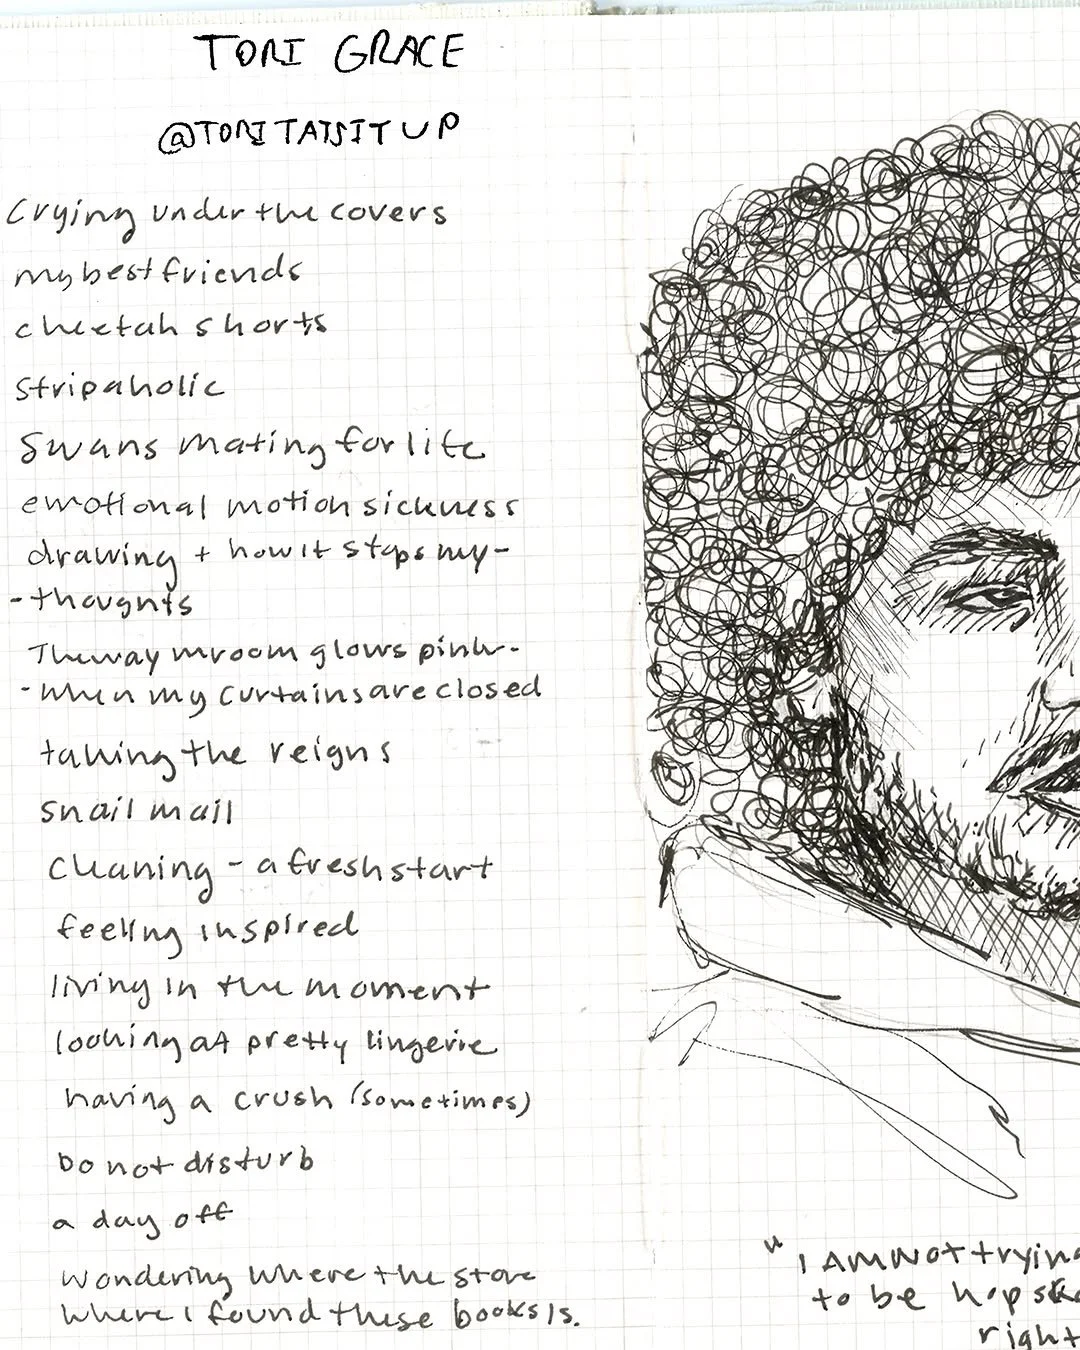 TORI GRACE
@TORITATSITUP
Crying under the covers
my best friends
cheetah shorts
stripaholic
Swans mating for life
emotional motion sickness
drawing + how it stops my-
-thoughts
The way mroom glows pink-
-when my curtains are closed
taking the reigns
snail mail
cleaning - a fresh start
feeling inspired
living in the moment
looking at pretty lingerie
having a crush (sometimes)
Do not disturb
a day off
Wondering where the store
where I found these books is.
"I AM NOT trying
to be hop
right